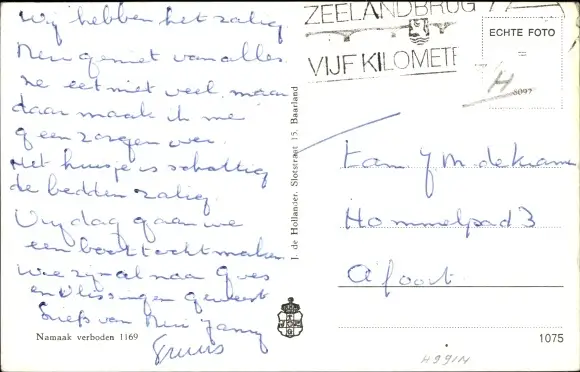 Wij hebben het zalig
geniet van alles
eet niet veel, maar
daar maak ik me
geen zorgen over.
Het huisje is schattig
de bedden zalig.
Vrijdag gaan we
een boottocht maken
We zijn al naar Goes
en Vlissingen geweest
Liefs van
Truus
Namaak verboden 1169
J. de Hollander, Slotstraat 15, Baarland
ZEELANDBRUG
VIJF KILOMETE
ECHTE FOTO
=
H
Fam J M de
Hommelpad 3
A'foort
1075